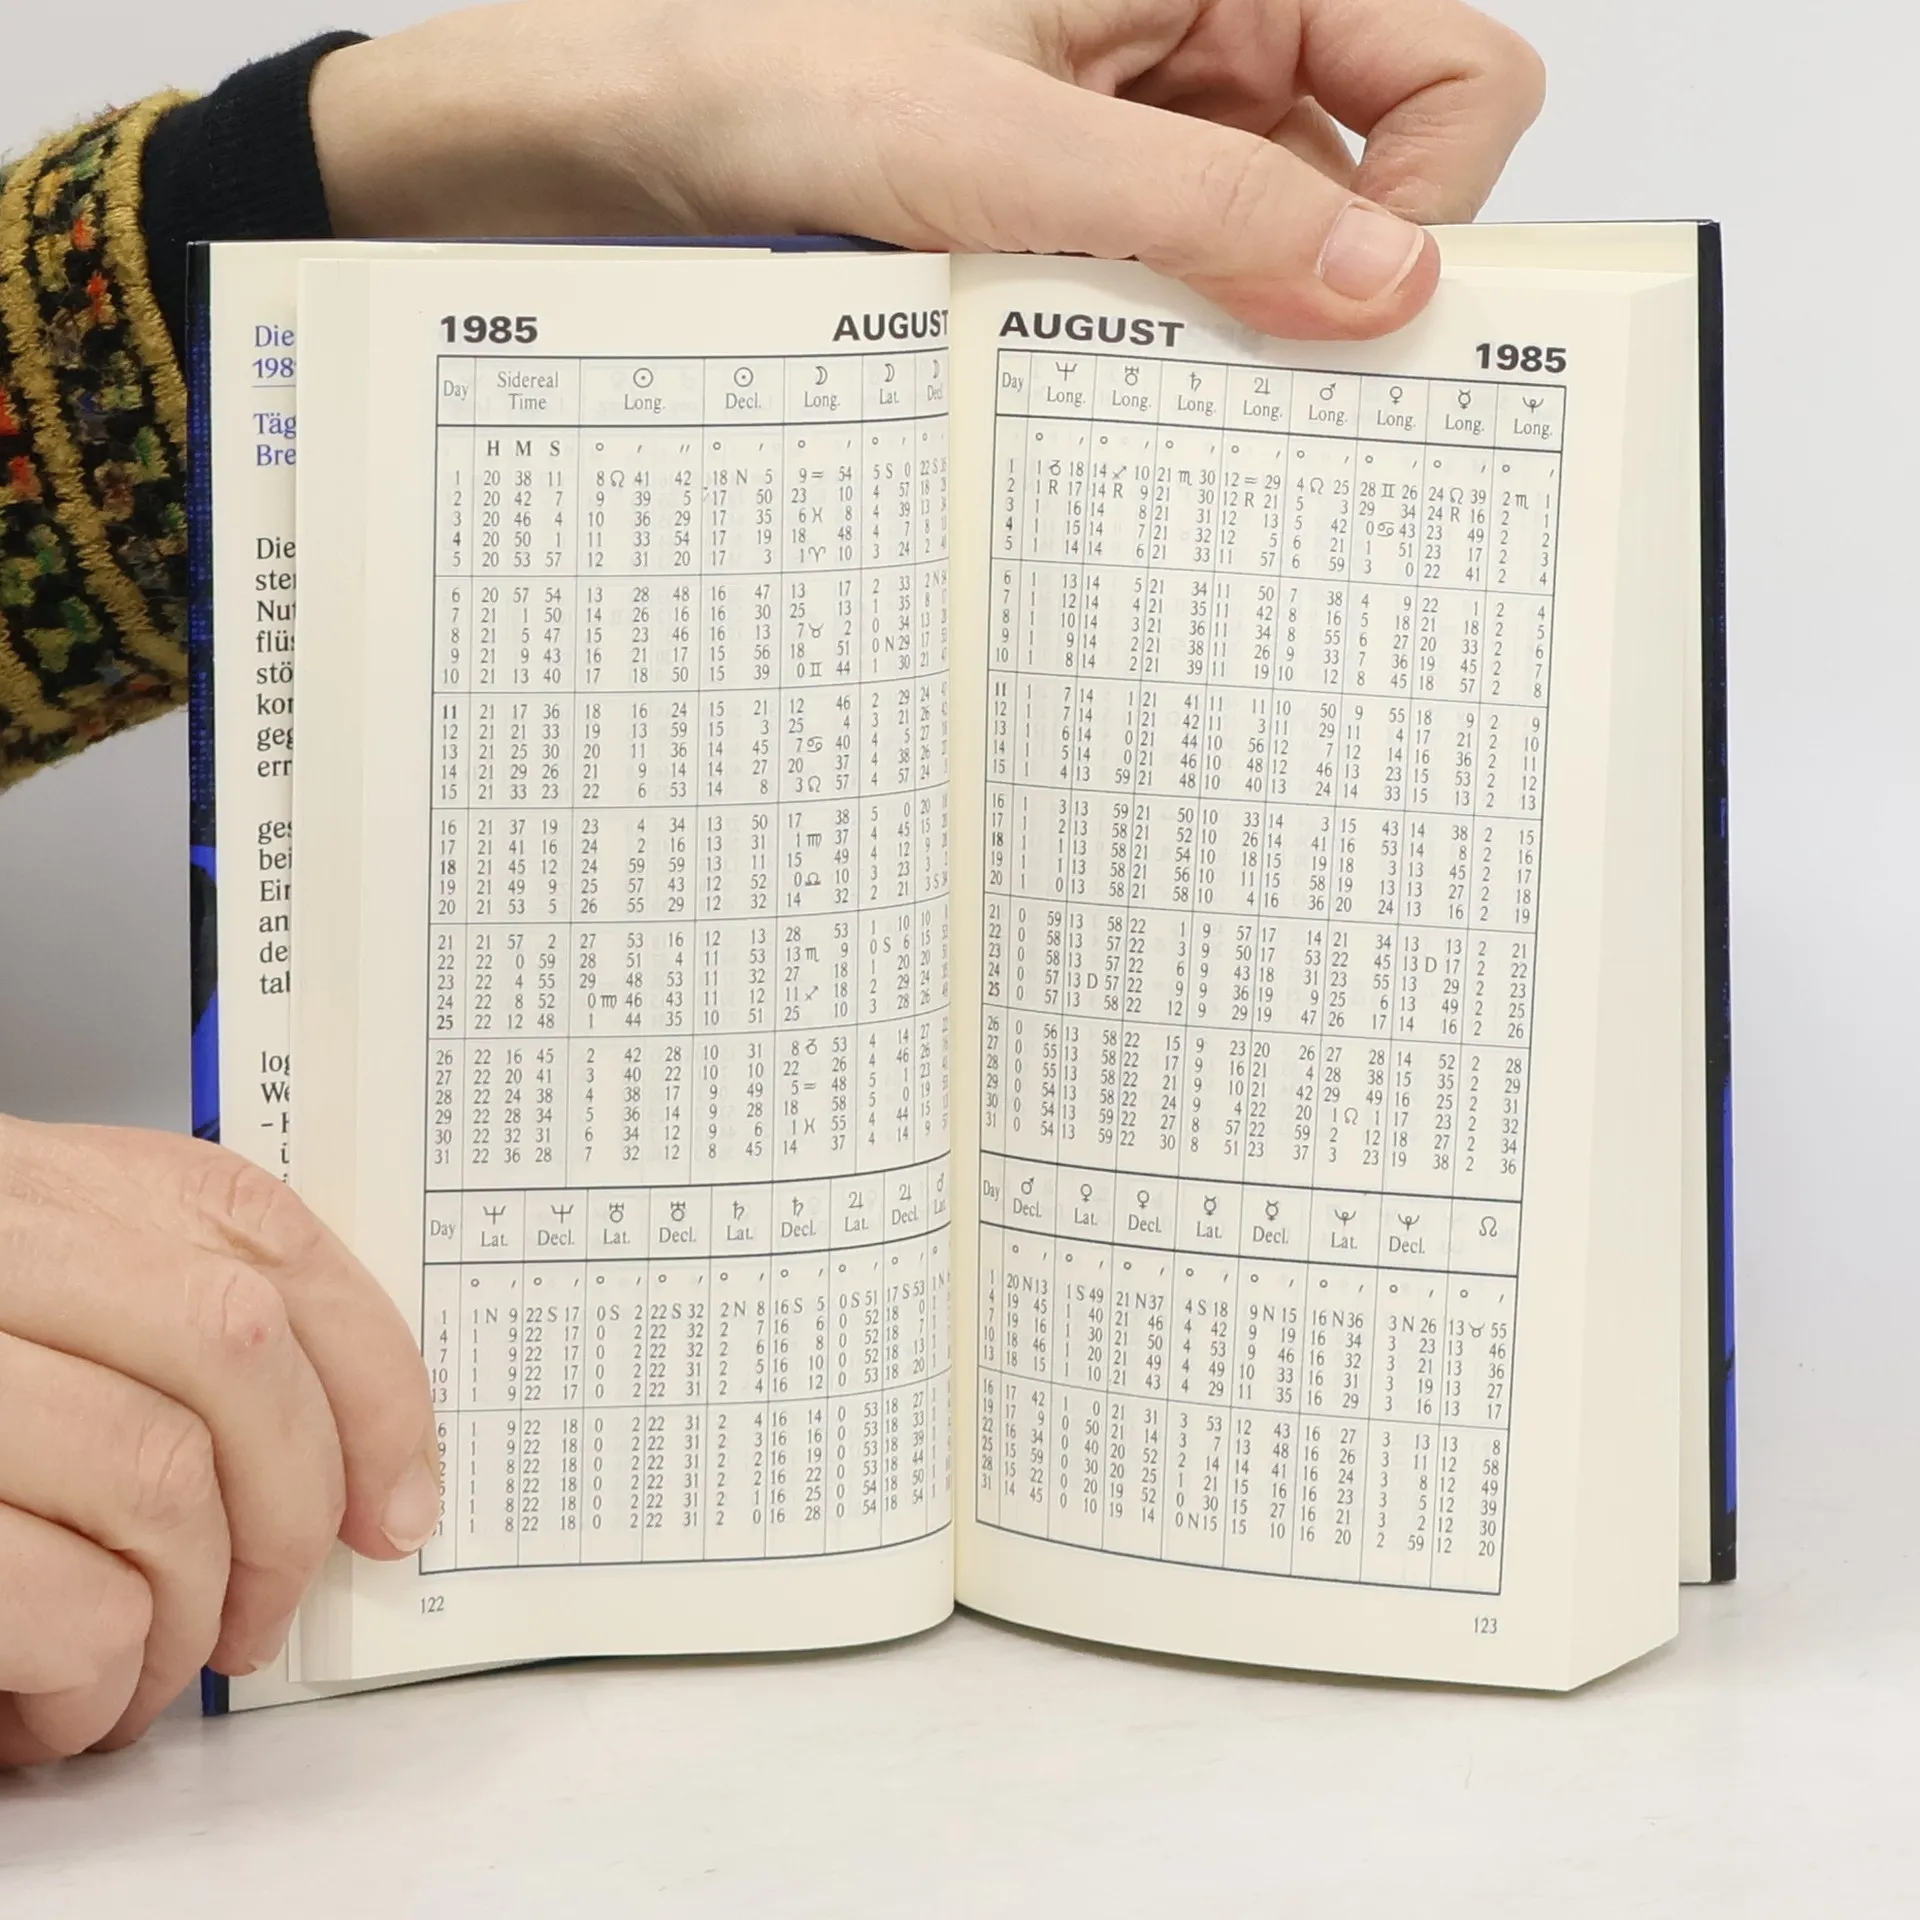 Die
198
Täg
Bre
Die
ste
Nu
flüs
stö
kor
geg
ges
bei
Ein
an
de
log
We
1985 AUGUST
Day Sidereal Time ☉ Long. ☉ Decl. ☽ Long. ☽ Lat. ☽ Decl.
H M S ° ′ ″ ° ′ ° ′ ° ′ °
1 20 38 11 8 ♌ 41 42 18 N 5 9 ♒ 54 5 S 0 22 S
2 20 42 7 9 39 5 17 50 23 10 4 57 18
3 20 46 4 10 36 29 17 35 6 ♓ 8 4 39 13
4 20 50 1 11 33 54 17 19 18 48 4 7 8
5 20 53 57 12 31 20 17 3 1 ♈ 10 3 24 2
6 20 57 54 13 28 48 16 47 13 17 2 33 2 N
7 21 1 50 14 26 16 16 30 25 13 1 35 8
8 21 5 47 15 23 46 16 13 7 ♉ 2 0 34 13
9 21 9 43 16 21 17 15 56 18 51 0 N 29 17
10 21 13 40 17 18 50 15 39 0 ♊ 44 1 30 21
11 21 17 36 18 16 24 15 21 12 46 2 29 24
12 21 21 33 19 13 59 15 3 25 4 3 21 26
13 21 25 30 20 11 36 14 45 7 ♋ 40 4 5 27
14 21 29 26 21 9 14 14 27 20 37 4 38 26
15 21 33 23 22 6 53 14 8 3 ♌ 57 4 57 24
16 21 37 19 23 4 34 13 50 17 38 5 0 20
17 21 41 16 24 2 16 13 31 1 ♍ 37 4 45 15
18 21 45 12 24 59 59 13 11 15 49 4 12 9
19 21 49 9 25 57 43 12 52 0 ♎ 10 3 23 3
20 21 53 5 26 55 29 12 32 14 32 2 21 3 S
21 21 57 2 27 53 16 12 13 28 53 1 10 10
22 22 0 59 28 51 4 11 53 13 ♏ 9 0 S 6 15
23 22 4 55 29 48 53 11 32 27 18 1 20 20
24 22 8 52 0 ♍ 46 43 11 12 11 ♐ 18 2 29 24
25 22 12 48 1 44 35 10 51 25 10 3 28 26
26 22 16 45 2 42 28 10 31 8 ♑ 53 4 14 27
27 22 20 41 3 40 22 10 10 22 26 4 46 26
28 22 24 38 4 38 17 9 49 5 ♒ 48 5 1 23
29 22 28 34 5 36 14 9 28 18 58 5 0 19
30 22 32 31 6 34 12 9 6 1 ♓ 55 4 44 15
31 22 36 28 7 32 12 8 45 14 37 4 14 9
Day ♆ Lat. ♆ Decl. ♅ Lat. ♅ Decl. ♄ Lat. ♄ Decl. ♃ Lat. ♃ Decl. ♂ Lat.
° ′ ° ′ ° ′ ° ′ ° ′ ° ′ ° ′ ° ′ °
1 1 N 9 22 S 17 0 S 2 22 S 32 2 N 8 16 S 5 0 S 51 17 S 53 1 N
4 1 9 22 17 0 2 22 32 2 7 16 6 0 52 18 0 1
7 1 9 22 17 0 2 22 32 2 6 16 8 0 52 18 7 1
10 1 9 22 17 0 2 22 31 2 5 16 10 0 52 18 13 1
13 1 9 22 17 0 2 22 31 2 4 16 12 0 53 18 20 1
6 1 9 22 18 0 2 22 31 2 4 16 14 0 53 18 27 1
9 1 9 22 18 0 2 22 31 2 3 16 16 0 53 18 33 1
2 1 8 22 18 0 2 22 31 2 2 16 19 0 53 18 39 1
1 8 22 18 0 2 22 31 2 2 16 22 0 53 18 44 1
1 8 22 18 0 2 22 31 2 1 16 25 0 54 18 50 1
1 1 8 22 18 0 2 22 31 2 0 16 28 0 54 18 54 1
122
AUGUST 1985
Day ♆ Long. ♅ Long. ♄ Long. ♃ Long. ♂ Long. ♀ Long. ☿ Long. ♇ Long.
° ′ ° ′ ° ′ ° ′ ° ′ ° ′ ° ′ ° ′
1 1 ♑ 18 14 ♐ 10 21 ♏ 30 12 ♒ 29 4 ♌ 25 28 ♊ 26 24 ♌ 39 2 ♏ 1
2 1 R 17 14 R 9 21 30 12 R 21 5 3 29 34 24 R 16 2 1
3 1 16 14 8 21 31 12 13 5 42 0 ♋ 43 23 49 2 2
4 1 15 14 7 21 32 12 5 6 21 1 51 23 17 2 3
5 1 14 14 6 21 33 11 57 6 59 3 0 22 41 2 4
6 1 13 14 5 21 34 11 50 7 38 4 9 22 1 2 4
7 1 12 14 4 21 35 11 42 8 16 5 18 21 18 2 5
8 1 10 14 3 21 36 11 34 8 55 6 27 20 33 2 6
9 1 9 14 2 21 38 11 26 9 33 7 36 19 45 2 7
10 1 8 14 2 21 39 11 19 10 12 8 45 18 57 2 8
11 1 7 14 1 21 41 11 11 10 50 9 55 18 9 2 9
12 1 7 14 1 21 42 11 3 11 29 11 4 17 21 2 10
13 1 6 14 0 21 44 10 56 12 7 12 14 16 36 2 11
14 1 5 14 0 21 46 10 48 12 46 13 23 15 53 2 12
15 1 4 13 59 21 48 10 40 13 24 14 33 15 13 2 13
16 1 3 13 59 21 50 10 33 14 3 15 43 14 38 2 15
17 1 2 13 58 21 52 10 26 14 41 16 53 14 8 2 16
18 1 1 13 58 21 54 10 18 15 19 18 3 13 45 2 17
19 1 1 13 58 21 56 10 11 15 58 19 13 13 27 2 18
20 1 0 13 58 21 58 10 4 16 36 20 24 13 16 2 19
21 0 59 13 58 22 1 9 57 17 14 21 34 13 13 2 21
22 0 58 13 57 22 3 9 50 17 53 22 45 13 D 17 2 22
23 0 58 13 57 22 6 9 43 18 31 23 55 13 29 2 23
24 0 57 13 D 57 22 9 9 36 19 9 25 6 13 49 2 25
25 0 57 13 58 22 12 9 29 19 47 26 17 14 16 2 26
26 0 56 13 58 22 15 9 23 20 26 27 28 14 52 2 28
27 0 55 13 58 22 17 9 16 21 4 28 38 15 35 2 29
28 0 55 13 58 22 21 9 10 21 42 29 49 16 25 2 31
29 0 54 13 58 22 24 9 4 22 20 1 ♌ 1 17 23 2 32
30 0 54 13 59 22 27 8 57 22 59 2 12 18 27 2 34
31 0 54 13 59 22 30 8 51 23 37 3 23 19 38 2 36
Day ♂ Decl. ♀ Lat. ♀ Decl. ☿ Lat. ☿ Decl. ♇ Lat. ♇ Decl. ☊
° ′ ° ′ ° ′ ° ′ ° ′ ° ′ ° ′ ° ′
1 20 N 13 1 S 49 21 N 37 4 S 18 9 N 15 16 N 36 3 N 26 13 ♉ 55
4 19 45 1 40 21 46 4 42 9 19 16 34 3 23 13 46
7 19 16 1 30 21 50 4 53 9 46 16 32 3 21 13 36
10 18 46 1 20 21 49 4 49 10 33 16 31 3 19 13 27
13 18 15 1 10 21 43 4 29 11 35 16 29 3 16 13 17
16 17 42 1 0 21 31 3 53 12 43 16 27 3 13 13 8
19 17 9 0 50 21 14 3 7 13 48 16 26 3 11 12 58
22 16 34 0 40 20 52 2 14 14 41 16 24 3 8 12 49
25 15 59 0 30 20 25 1 21 15 16 16 23 3 5 12 39
28 15 22 0 20 19 52 0 30 15 27 16 21 3 2 12 30
31 14 45 0 10 19 14 0 N 15 15 10 16 20 2 59 12 20
123